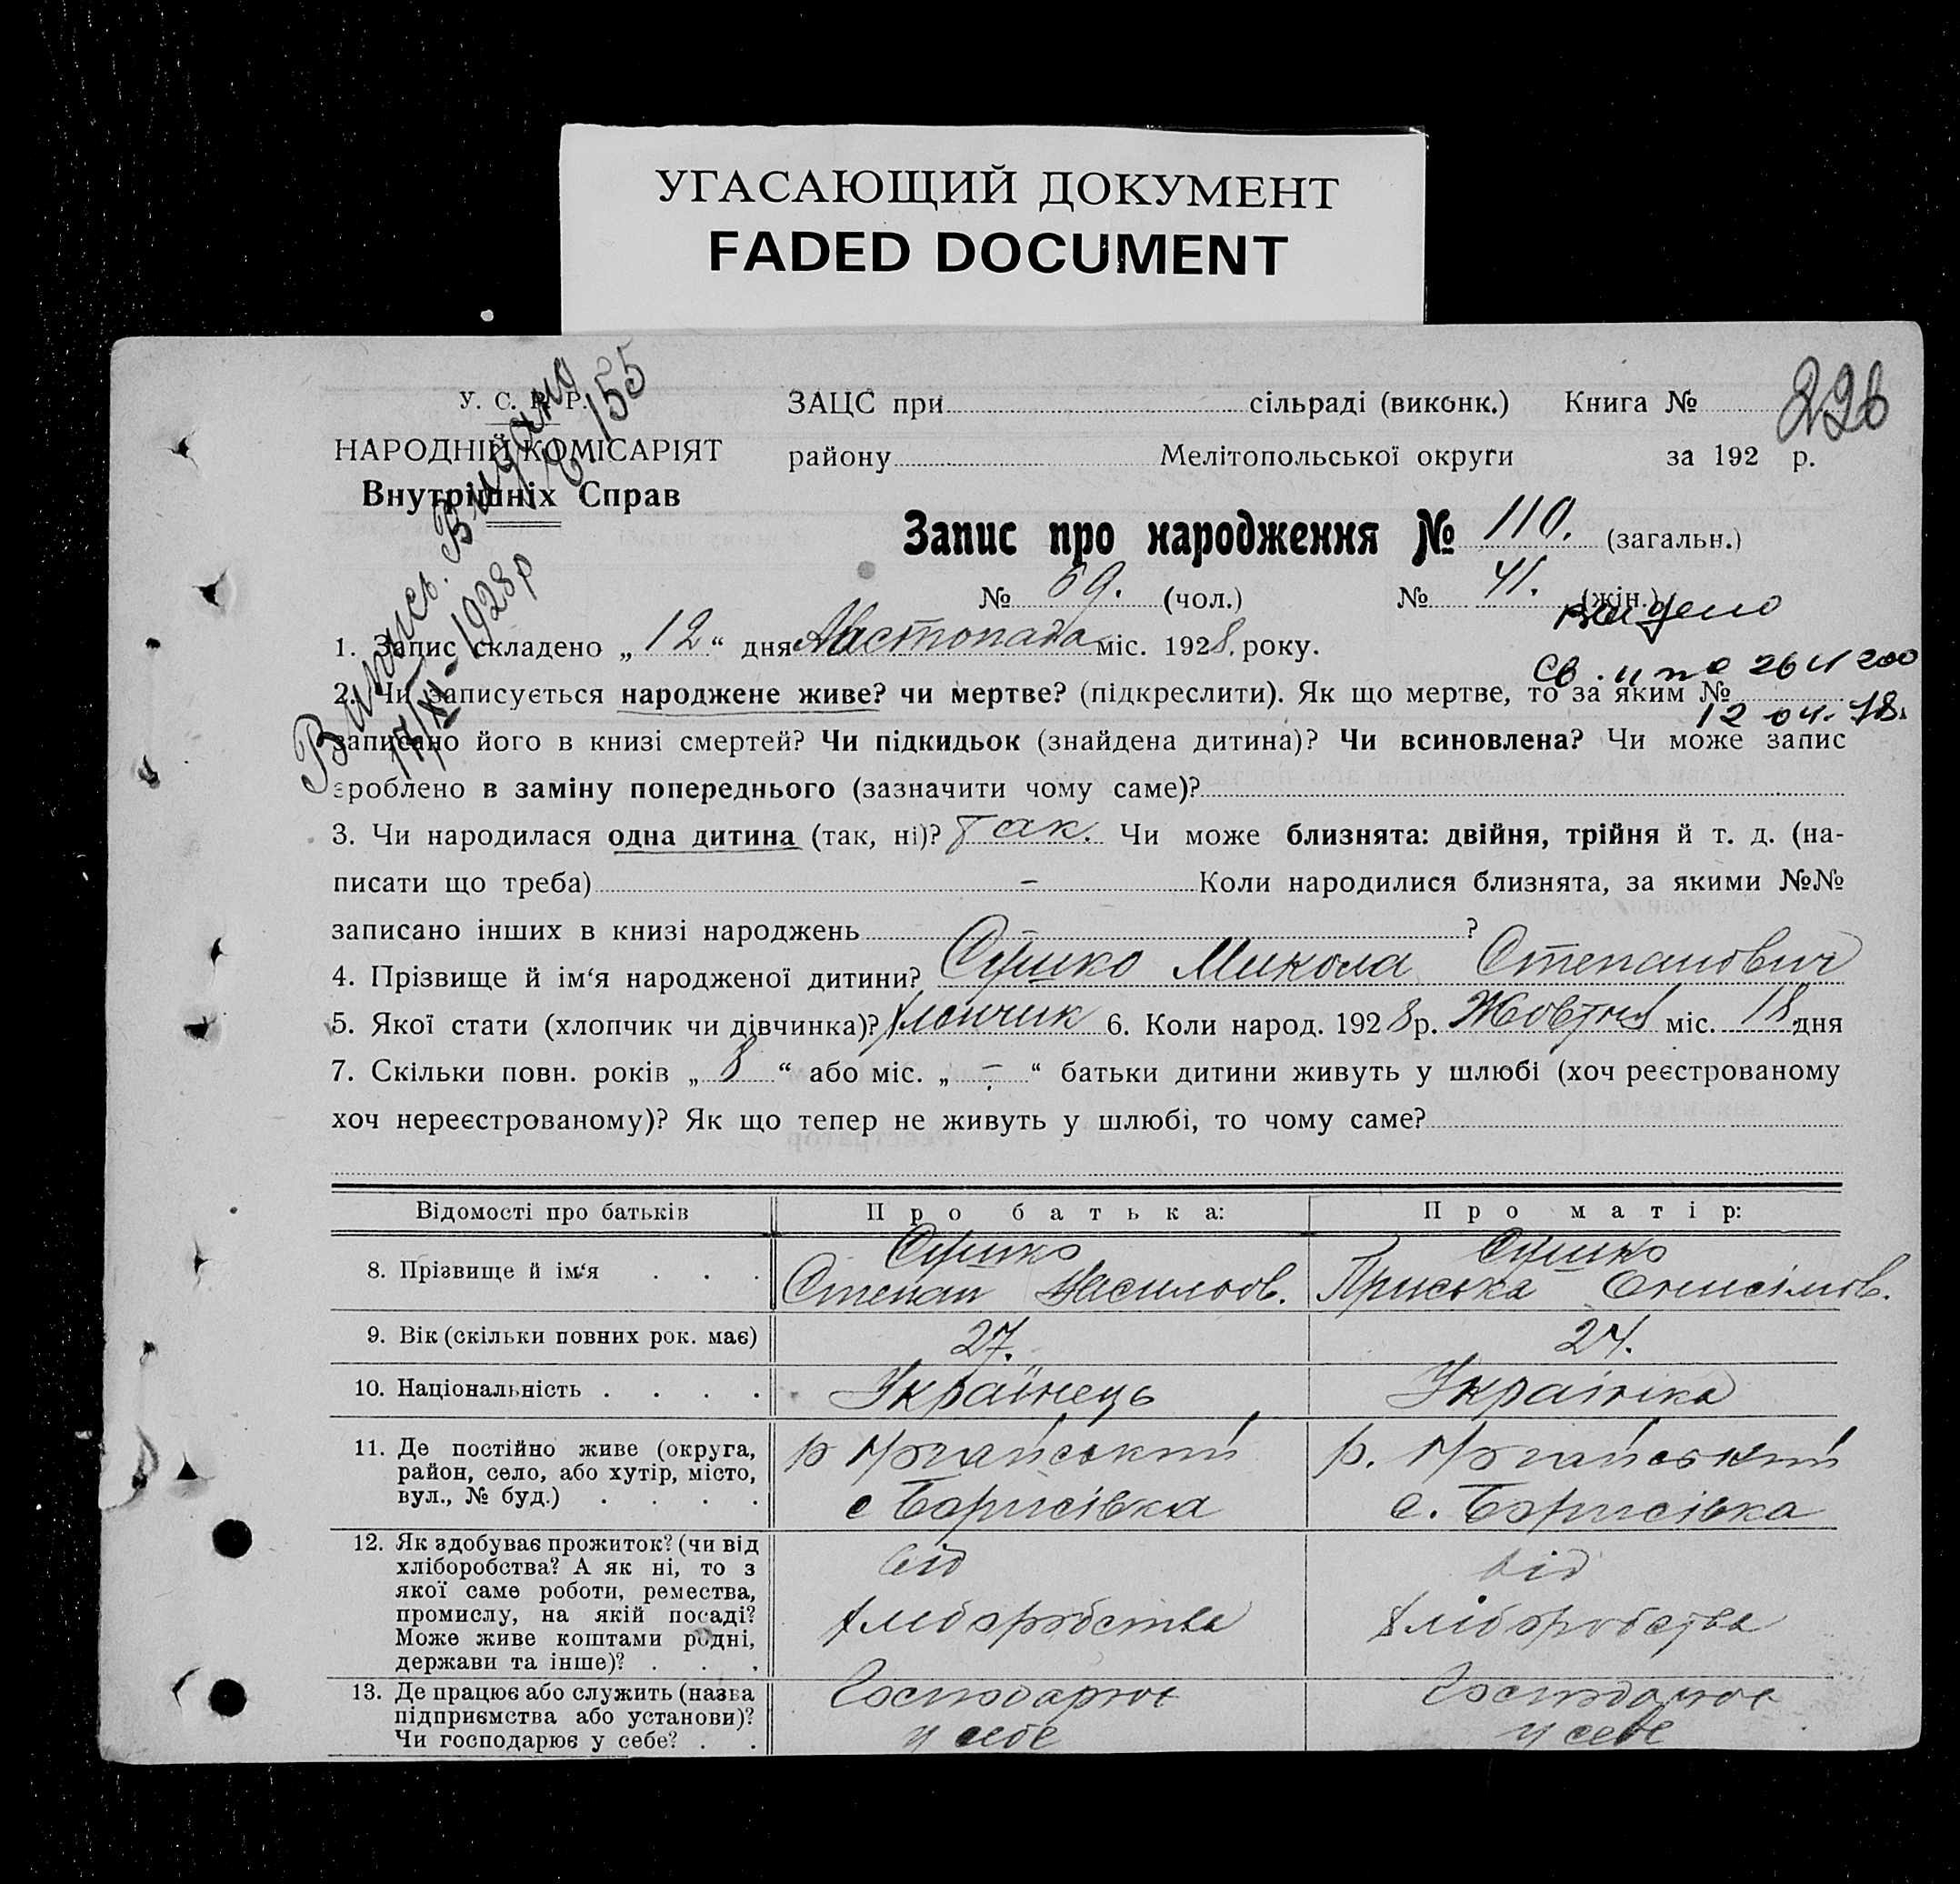 УГАСАЮЩИЙ ДОКУМЕНТ
FADED DOCUMENT
226
У. С. Р. Р.
НАРОДНІЙ КОМІСАРІЯТ
Внутрішніх Справ
Випись. Видано
155
17/XI-1928р
ЗАЦС при сільраді (виконк.) Книга №
району Мелітопольської округи за 192 р.
Запис про народження № 110. (загальн.)
№ 69. (чол.) № 41. (жін.)
видено
1. Запис складено „12“ дня Листопада міс. 1928, року.
2. Чи записується народжене живе? чи мертве? (підкреслити). Як що мертве, то за яким №
12 04. 78.
записано його в книзі смертей? Чи підкидьок (знайдена дитина)? Чи всиновлена? Чи може запис
зроблено в заміну попереднього (зазначити чому саме)?
3. Чи народилася одна дитина (так, ні)? Так. Чи може близнята: двійня, трійня й т. д. (на-
писати що треба) – Коли народилися близнята, за якими №№
записано інших в книзі народжень – ?
4. Прізвище й ім‘я народженої дитини? Сушко Микола Степанович
5. Якої стати (хлопчик чи дівчинка)? Хлопчик 6. Коли народ. 1928 р. Жовтня міс. 18 дня
7. Скільки повн. років „8“ або міс. „–“ батьки дитини живуть у шлюбі (хоч реєстрованому
хоч нереєстрованому)? Як що тепер не живуть у шлюбі, то чому саме?
Відомості про батьків Про батька: Про матір:
8. Прізвище й ім‘я . . . Сушко Степан Васильов. Сушко Приська Онисімов.
9. Вік (скільки повних рок. має) 27. 24.
10. Національність . . . . Українець Українка
11. Де постійно живе (округа,
район, село, або хутір, місто,
вул., № буд.) . . . .
с Борисівка с. Борисівка
12. Як здобуває прожиток? (чи від
хліборобства? А як ні, то з
якої саме роботи, ремества,
промислу, на якій посаді?
Може живе коштами родні,
держави та інше)? . . .
від хліборобства від хліборобства
13. Де працює або служить (назва
підприємства або установи)?
Чи господарює у себе? . .
Господарює у себе Господарює у себе